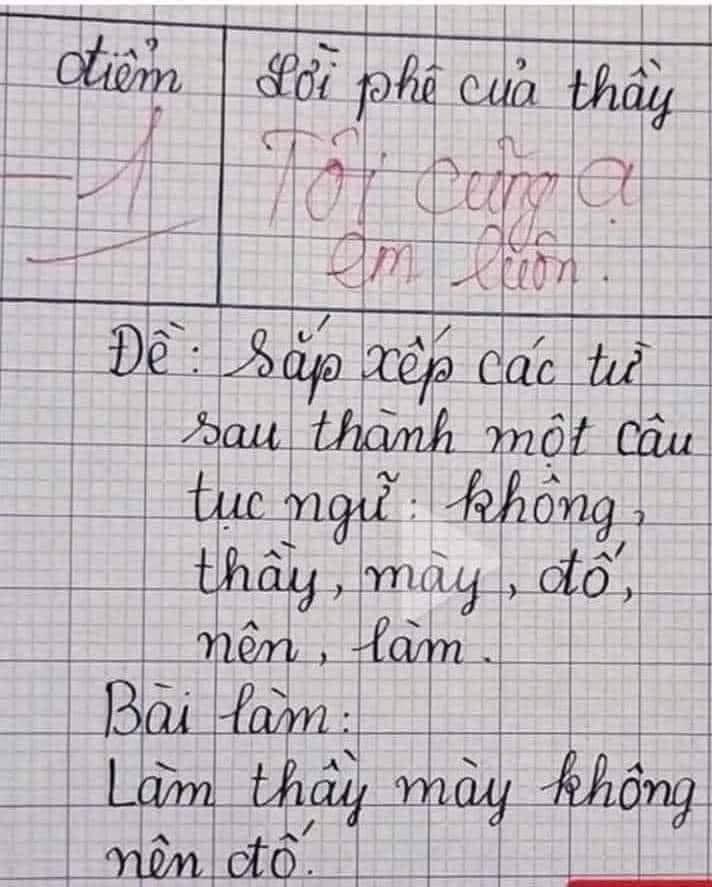 điểm
Lời phê của thầy
-1
Tôi cũng ạ
em luôn.
Đề: Sắp xếp các từ
sau thành một câu
tục ngữ: không,
thầy, mày, đố,
nên, làm.
Bài làm:
Làm thầy mày không
nên đố.